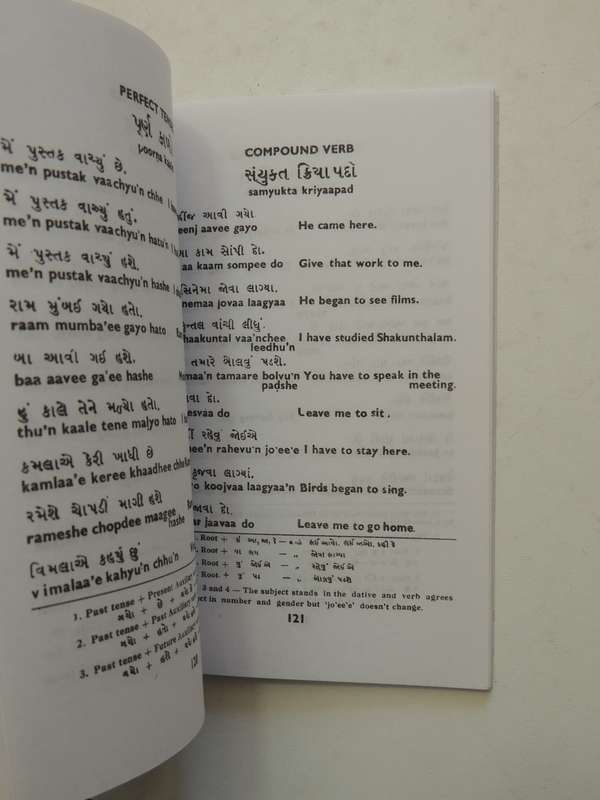 PERFECT
પૂર્ણ
poorna
મેં પુસ્તક વાચ્યું છે.
me'n pustak vaachyu'n chhe
મેં પુસ્તક વાચ્યું હતું.
me'n pustak vaachyu'n hatu'n
મેં પુસ્તક વાચ્યું હશે.
me'n pustak vaachyu'n hashe
રામ મુંબઈ ગયો હતો.
raam mumba'ee gayo hato
બા આવી ગઈ હશે.
baa aavee ga'ee hashe
હું કાલે તેને મળ્યો હતો.
thu'n kaale tene malyo hato
કમલાએ કેરી ખાધી છે
kamlaa'e keree khaadhee chhe
રમેશે ચોપડી માગી હશે
rameshe chopdee maagee
hashe
વિમલાએ કહ્યું છું
vimalaa'e kahyu'n chhu'n
1. Past tense + Present Auxiliary
2. Past tense + Past Auxiliary
3. Past tense + Future Auxiliary
120
COMPOUND VERB
સંયુક્ત ક્રિયાપદો
samyukta kriyaapad
આવી ગયો
aavee gayo He came here.
કામ સોંપી દો.
kaam sompee do Give that work to me.
સિનેમા જોવા લાગ્યા.
jovaa laagyaa He began to see films.
વાંચી લીધું.
vaa'nchee I have studied Shakunthalam.
leedhu'n
તમારે બોલવું પડશે.
tamaare bolvu'n You have to speak in the
padshe meeting.
દો.
do Leave me to sit.
રહેવું જોઈએ
rahevu'n jo'ee'e I have to stay here.
કૂજવા લાગ્યાં.
koojvaa laagyaa'n Birds began to sing.
જાવા દો.
jaavaa do Leave me to go home.
Root +
Root +
Root +
Root +
3 and 4 — The subject stands in the dative and verb agrees
in number and gender but 'jo'ee'e' doesn't change.
121